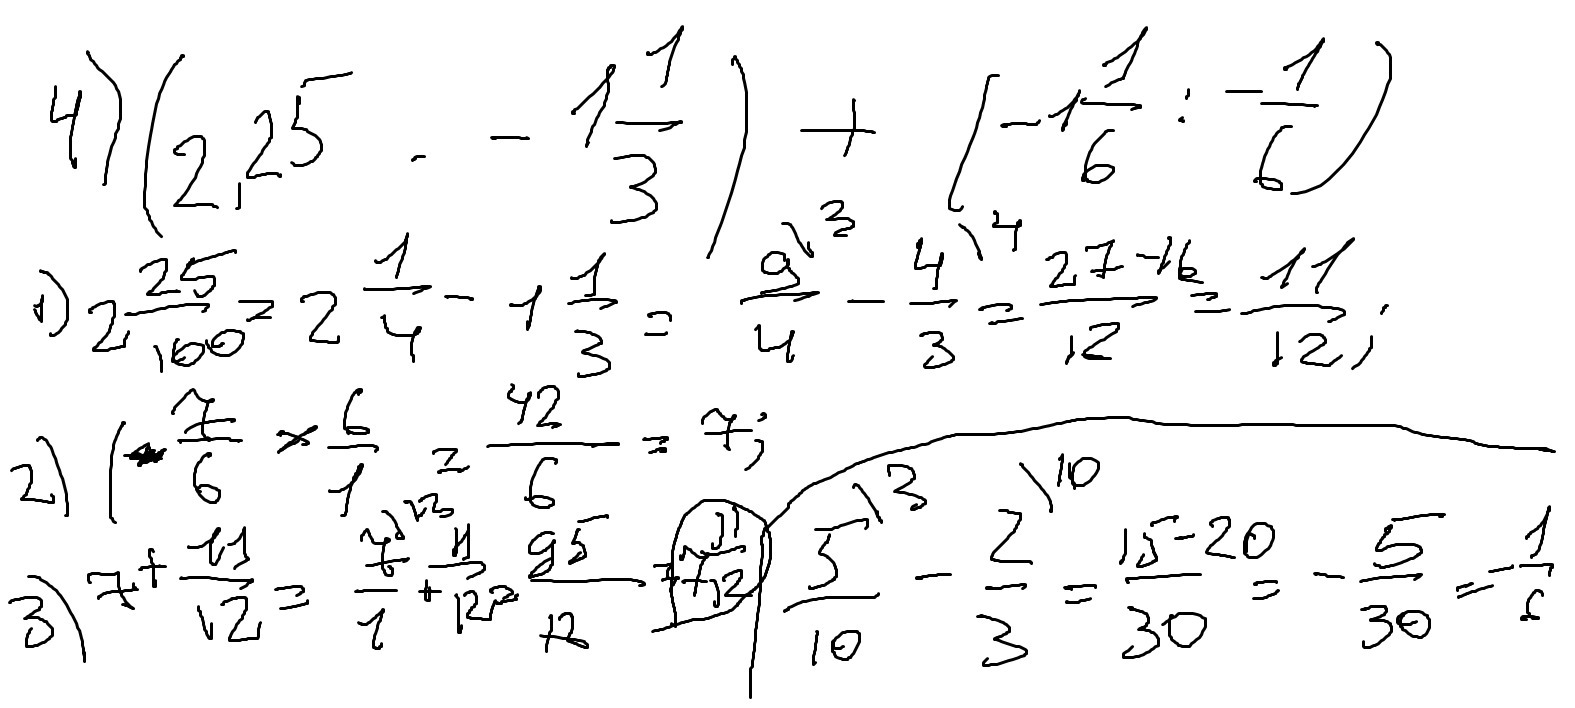 4) (2,25 . - 1 1/3) + (-1 1/6 : - 1/6)
1) 2 25/100 = 2 1/4 - 1 1/3 = 9/4 \3 - 4/3 \4 = 27-16/12 = 11/12;
2) (- 7/6 × 6/1 = 42/6 = 7;
3) 7 + 11/12 = 7/1 \12 + 11/12 = 95/12 = 7 11/12
5/10 \3 - 2/3 \10 = 15-20/30 = - 5/30 = - 1/6